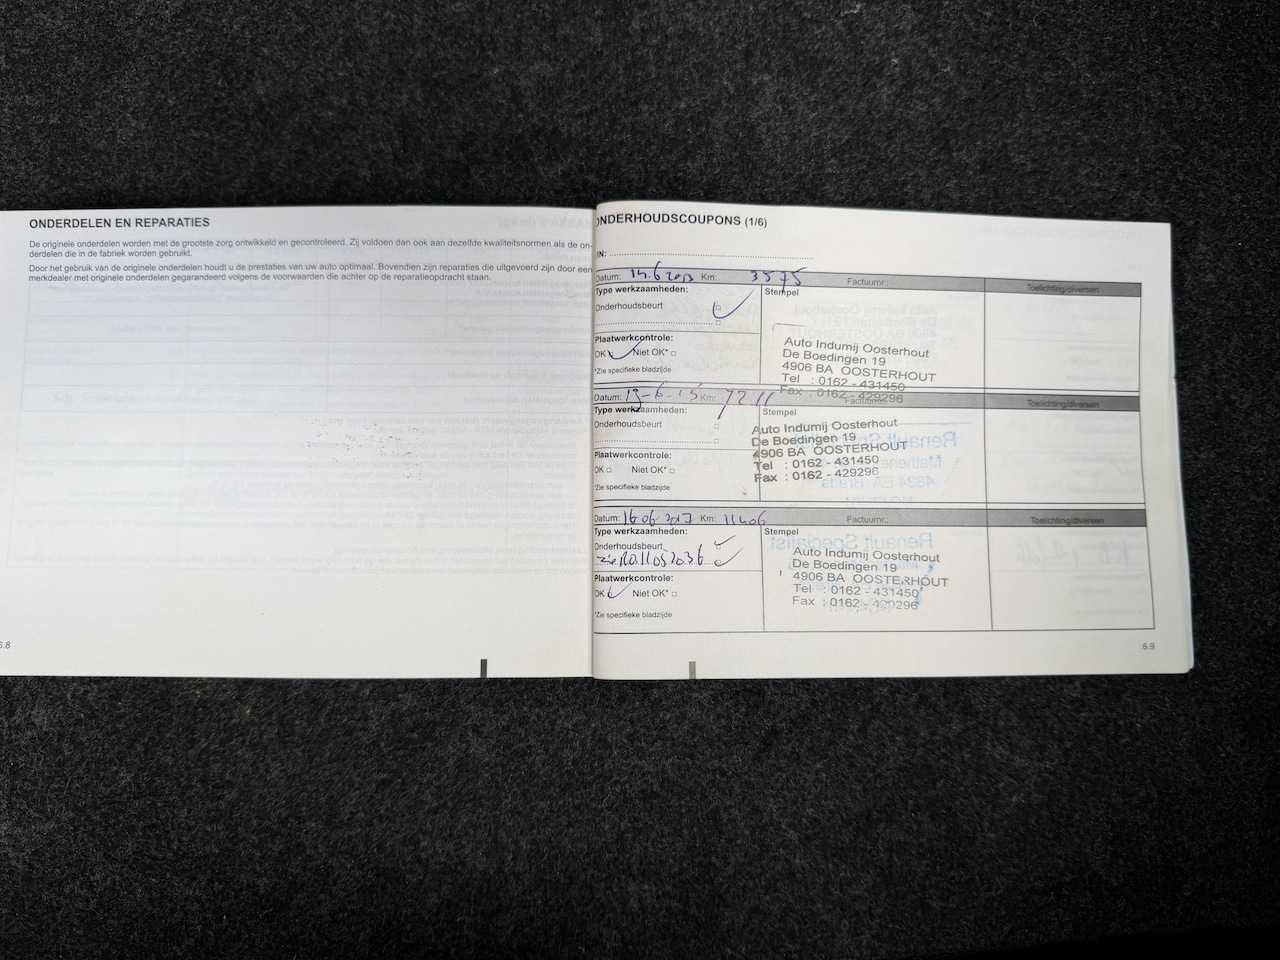 ONDERDELEN EN REPARATIES
De originele onderdelen worden met de grootste zorg ontwikkeld en gecontroleerd. Zij voldoen dan ook aan dezelfde kwaliteitsnormen als de on-
derdelen die in de fabriek worden gebruikt.
Door het gebruik van de originele onderdelen houdt u de prestaties van uw auto optimaal. Bovendien zijn reparaties die uitgevoerd zijn door een
merkdealer met originele onderdelen gegarandeerd volgens de voorwaarden die achter op de reparatieopdracht staan.
6.8
ONDERHOUDSCOUPONS (1/6)
IN:
Datum: 14.6 2013 Km: 3575 Factuurnr.: Toelichting/diversen
Type werkzaamheden:
Onderhoudsbeurt
Stempel
Plaatwerkcontrole:
OK Niet OK*
*Zie specifieke bladzijde
Auto Indumij Oosterhout
De Boedingen 19
4906 BA OOSTERHOUT
Tel : 0162 - 431450
Fax : 0162 - 429296
Datum: 19-6-15 Km: 7211 Factuurnr.: Toelichting/diversen
Type werkzaamheden:
Onderhoudsbeurt
Stempel
Plaatwerkcontrole:
OK Niet OK*
*Zie specifieke bladzijde
Auto Indumij Oosterhout
De Boedingen 19
4906 BA OOSTERHOUT
Tel : 0162 - 431450
Fax : 0162 - 429296
Datum: 16-06-2017 Km: 11406 Factuurnr.: Toelichting/diversen
Type werkzaamheden:
Onderhoudsbeurt
Stempel
Plaatwerkcontrole:
OK Niet OK*
*Zie specifieke bladzijde
Auto Indumij Oosterhout
De Boedingen 19
4906 BA OOSTERHOUT
Tel : 0162 - 431450
Fax : 0162 - 429296
6.9